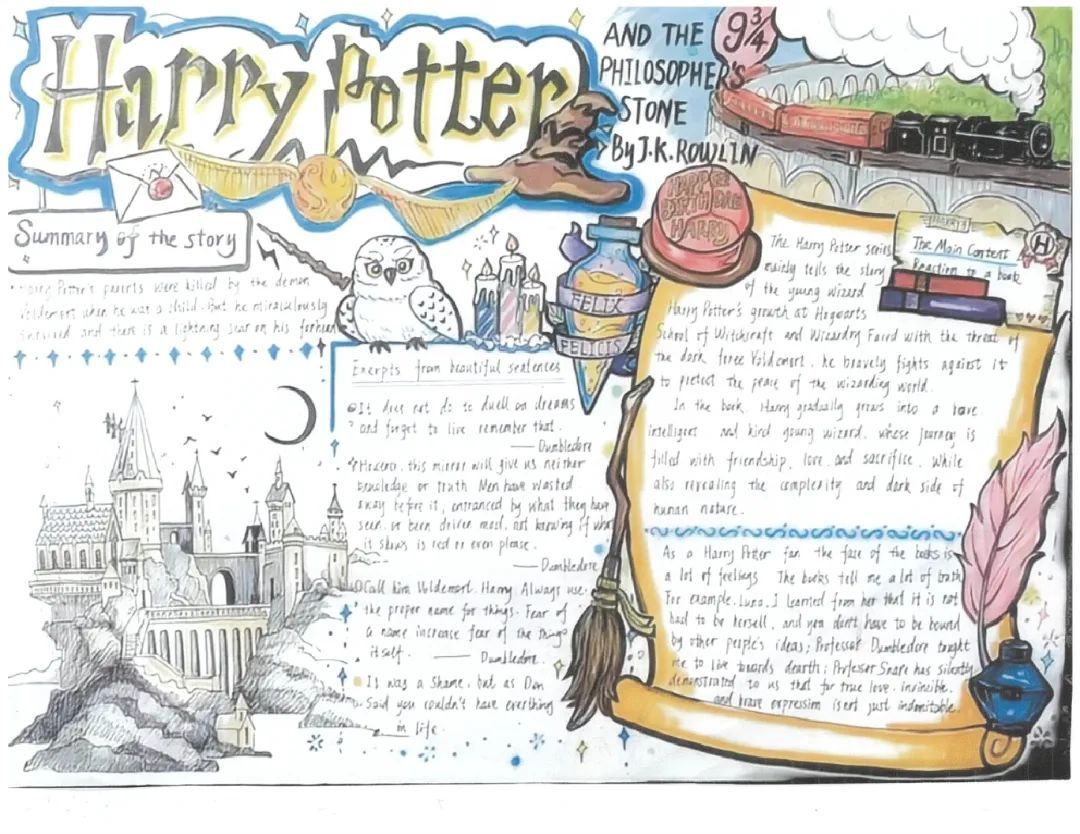 Harry Potter
AND THE
PHILOSOPHER'S
STONE
By J.K.ROWLIN
9¾
Summary of the story
Harry Potter's parents were killed by the demon
Voldemort when he was a child. But he miraculously
survived and there is a lightning scar on his forhead
FELIX
FELICIS
HAPPEE
BIRTHDAE
HARRY
Exerpts from beautiful sentences
It does not do to dwell on dreams
and forget to live remember that.
—— Dumbledore
However, this mirror will give us neither
knowledge or truth Men have wasted
away before it, entranced by what they have
seen, or been driven mad, not knowing if what
it shows is red or even please.
—— Dumbledore
Call him Voldemort. Harry. Always use
the proper name for things. Fear of
a name increase fear of the things
itself. —— Dumbledore.
It was a shame, but as Don
Said you couldn't have everthing
in life.
The Main Content
Reaction to a book
H
The Harry Potter series
mainly tells the story
of the young wizard
Harry Potter's growth at Hogwarts
School of Witchcraft and Wizardry Faird with the threat of
the dark force Voldemort. he bravely fights against it
to protect the peace of the wizarding world.
In the book, Harry gradually grows into a brave
intelligent and kind young wizard. whose journey is
filled with friendship, love, and sacrifice. While
also revealing the complexity and dark side of
human nature.
As a Harry Potter fan the face of the books is
a lot of feelings The books tell me a lot of truth
For example, Luna, I learned from her that it is not
bad to be herself, and you don't have to be bound
by other people's ideas; Professor Dumbledore taught
me to live towards dearth; Professor Snape has silently
demonstrated to us that for true love. invincible.
and brave expression isent just indomitable.